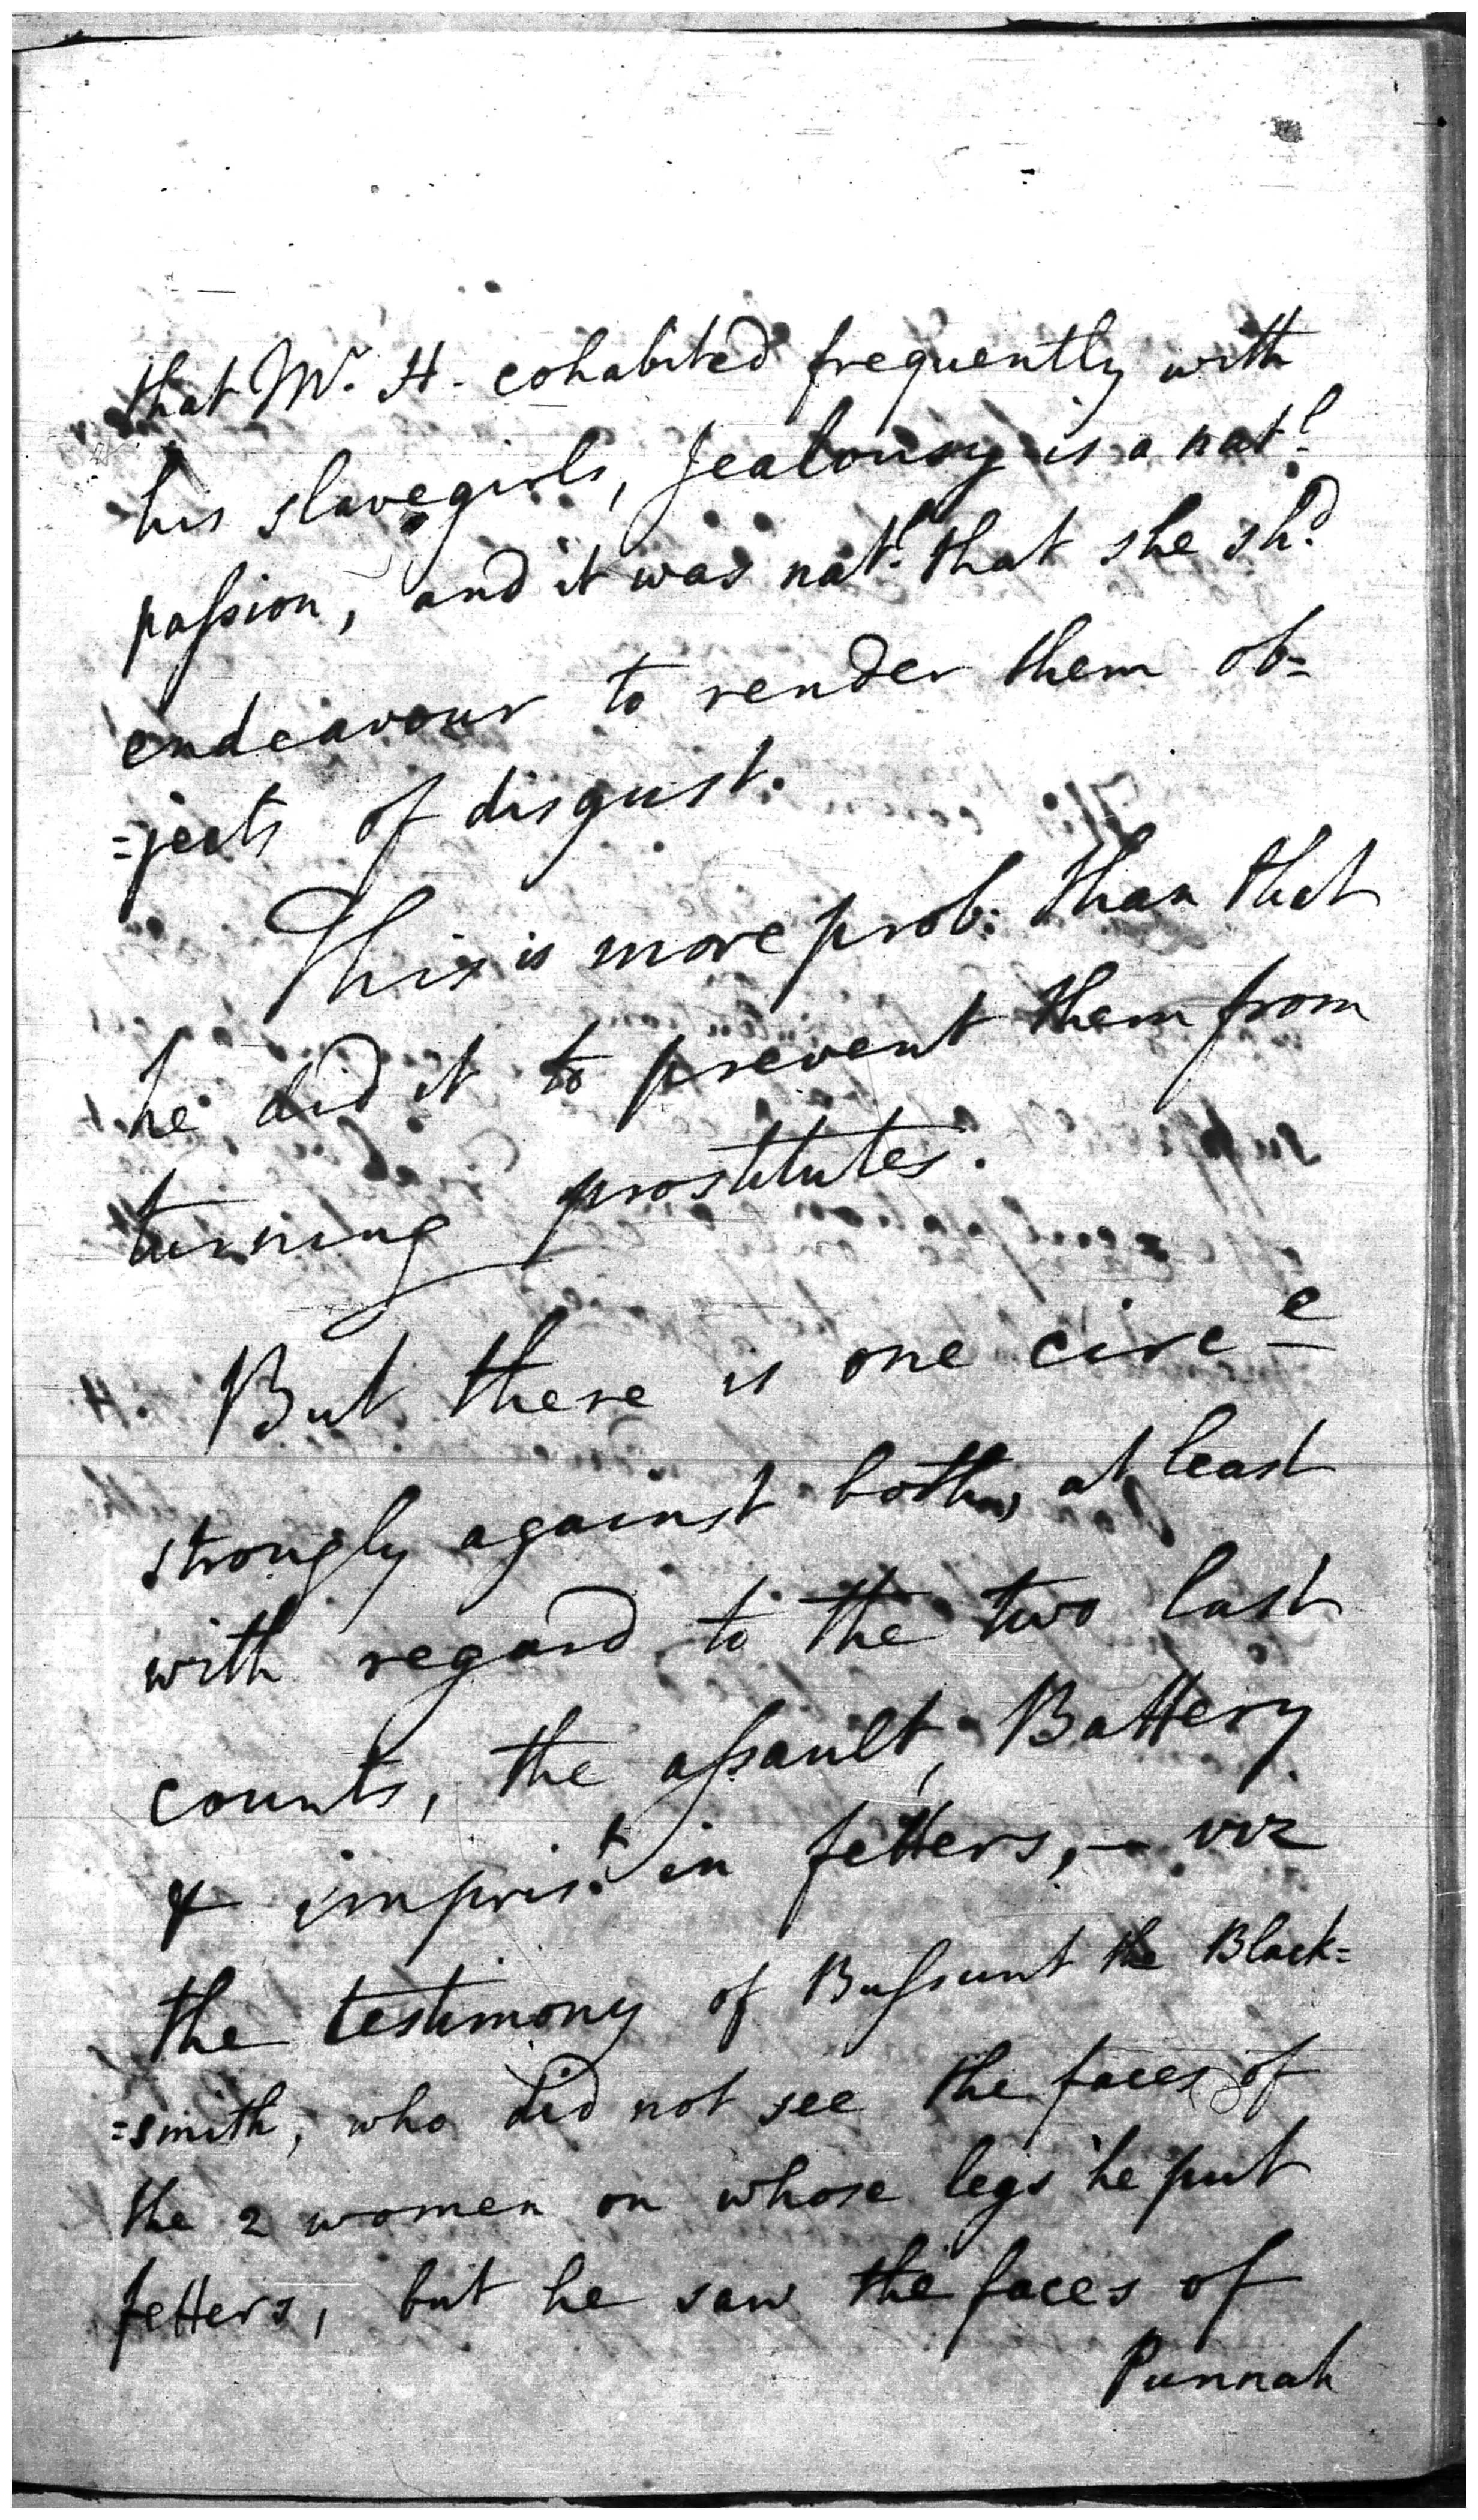 that Mr. H. cohabited frequently with
his slavegirls, Jealousy is a natl.
paſsion, and it was natl. that she shd.
endeavour to render them ob=
=jects of disgust.
This is more prob: than that
he did it to prevent them from
turning prostitutes.
But there is one circe
strongly against both, at least
with regard to the two last
counts, the aſsault, Battery
& imprist. in fetters, - viz
the testimony of Buſsunt the Black=
=smith, who did not see the faces of
the 2 women on whose legs he put
fetters, but he saw the faces of
Punnah